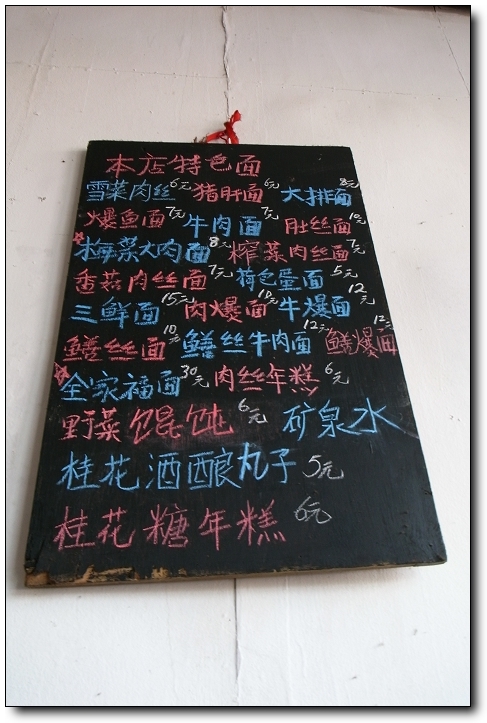 本店特色面
雪菜肉丝 6元 猪肝面 6元 大排面 8元
爆鱼面 7元 牛肉面 7元 肚丝面 10元
梅菜大肉面 8元 榨菜肉丝面 7元
香菇肉丝面 7元 荷包蛋面 5元
三鲜面 15元 肉爆面 10元 牛爆面 12元
鳝丝面 10元 鳝丝牛肉面 12元 鳝爆面 12元
全家福面 30元 肉丝年糕 6元
野菜馄饨 6元 矿泉水
桂花酒酿丸子 5元
桂花糖年糕 6元